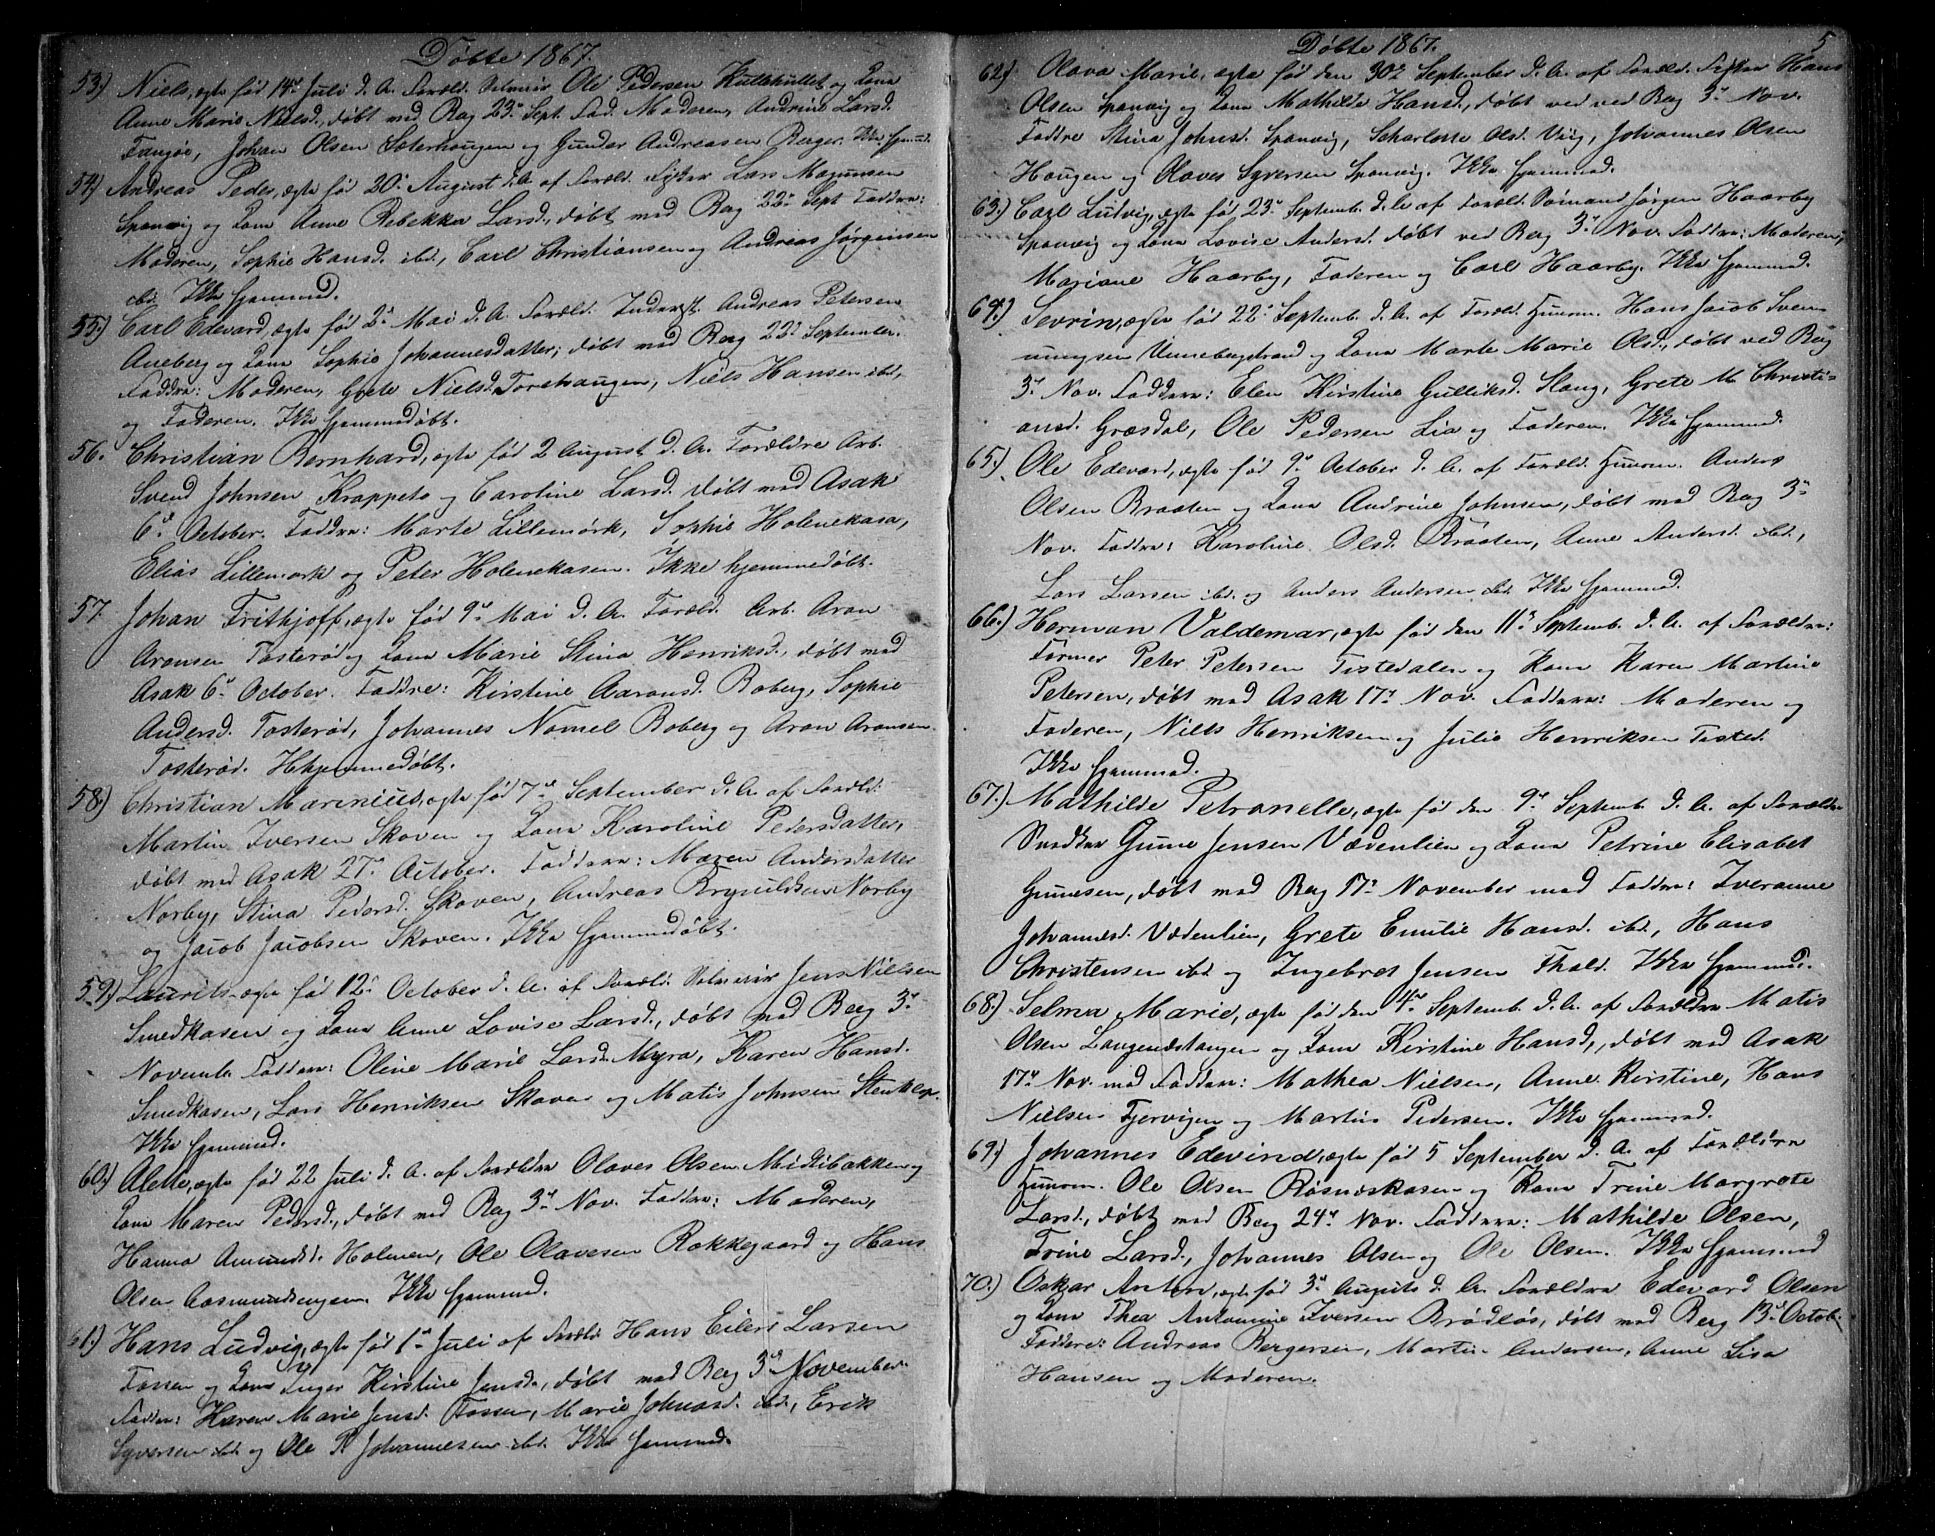 Døbte 1867.
53.) Niels, ægte fød 14de Juli d. A. Foræld. Ole Pedersen Kultehullet og Kone
Anne Marie Nielsd., døbt med Berg 22de Sept. Fad. Moderen, Andrine Larsd.
Tangøe, Johan Olsen Sæterhaugen og Gunder Andreasen Berger. Ikke hjemmed.
54.) Andreas Peder, ægte fød 20de August d. A. af Foræld. Fisker Lars Magnusen
Sponvig og Kone Anne Rebekka Larsd., døbt med Berg 22de Sept. Faddere:
Moderen, Sophie Hansd. ibd., Carl Christiansen og Andreas Jørgensen
ibd. Ikke hjemmed.
55.) Carl Edevard, ægte fød 2de Mai d. A. Foræld. Inderst. Andreas Petersen
Aneberg og Kone Sophie Johannesdatter, døbt med Berg 22de September.
Faddere: Moderen, Grete Nielsd. Torehaugen, Niels Hansen ibd.,
og Faderen. Ikke hjemmedøbt.
56. Christian Bernhard, ægte fød 2 August d. A. Forældre Arb.
Svend Johnsen Krappeto og Caroline Larsd. døbt med Asak
6te October. Faddere: Marte Lillemörk, Sophie Holenekasa,
Elias Lillemörk og Peter Holenekasen. Ikke hjemmedøbt.
57. Johan Frithjoff, ægte fød 9de Mai d. A. Foræld. Arb. Aron
Aronsen Tosterød og Kone Marie Stina Henriksd., døbt med
Asak 6te October. Faddre: Kirstine Aaronsd. Boberg, Sophie
Andersd. Tosterød, Johannes Nomel Boberg og Aron Aronsen
Tosterød. Hhjemmedøbt.
58.) Christian Marinius, ægte fød 7de September d. A. af Foræld.
Martin Iversen Skoven og Kone Karoline Pedersdatter,
døbt med Asak 27de October. Faddere: Maren Andersdatter
Norby, Stina Pedersd. Skoven, Andreas Norby
og Jacob Jacobsen Skoven. Ikke hjemmedøbt.
59.) Laurits, ægte fød 12te October d. A. af Foræld. Jens Nielsen
Smedkasen og Kone Anne Lovise Larsd., døbt med Berg 3de
Novemb. Faddere: Oline Marie Larsd. Myra, Karen Hansd.
Smedkasen, Lars Henriksen Skoven og Matis Johnsen
Ikke hjemmed.
60.) Alette, ægte fød 22 Juli d. A. af Forældre Olaves Olsen Midtibakken og
Kone Maren Pedersd., døbt med Berg 3de Nov. Faddere: Moderen,
Hanna Amundsd. Holmen, Ole Olavesen Rokkegaard og Hans
Olsen Aasmundsengen. Ikke hjemmed.
61.) Hans Ludvig, ægte fød 1ste Juli af Foræld. Hans Eilert Larsen
Fossen og Kone Inger Kirstine Jensd., døbt med Berg 3de November.
Fadder: Karen Marie Jensd. Fossen, Marie Johnsd. ibd., Erik
Syversen ibd. og Ole P. Johannesen ibd. Ikke hjemmed.
Døbte 1867.
5
62.) Olava Marie, ægte fød den 30te September d. A. af Foræld. Fisker Hans
Olsen Sponvig og Kone Mathilde Hansd., døbt ved ved Berg 3de Nov.
Faddre Stina Johnsd. Sponvig, Scharlotte Olsd. Viig, Johannes Olsen
Haugen og Olaves Syversen Sponvig. Ikke hjemmed.
63.) Carl Ludvig, ægte fød 23de Septemb. d. A. af Foræld. Sømand Jörgen Haarby
Sponvig og Kone Lovise Andersd. døbt ved Berg 3de Nov. Faddere: Moderen,
Mariane Haarby, Faderen og Carl Haarby. Ikke hjemmed.
64.) Sevrin, ægte fød 22de Septemb. d. A. af Foræld. Huusm. Hans Jacob Sven-
ningsen Unnebergstrand og Kone Marte Marie Olsd., døbt ved Berg
3de Nov. Faddere: Elen Kirstine Gulliksd. Slang, Grete M. Christi-
ansd. Græsdal, Ole Pedersen Lia og Faderen. Ikke hjemmed.
65.) Ole Edevard, ægte fød 9de October d. A. af Foræld. Huusm. Anders
Olsen Braaten og Kone Andrine Johnsen, døbt med Berg 3de
Nov. Faddere: Karoline Olsd. Bråten, Anne Andersd. ibd.,
Lars Larsen ibd. og Anders Andersen ibd. Ikke hjemmed.
66.) Herman Valdemar, ægte fød den 11te Septemb. d. A. af Forældre:
Former Peter Petersen Tistedalen og Kone Karen Martine
Petersen, døbt med Asak 17de Nov. Faddere: Moderen og
Faderen, Niels Henriksen og Julie Henriksen Tisted.
Ikke hjemmed.
67.) Mathilde Petronelle, ægte fød den 9de Septemb. d. A. af Forældre
Snedker Gunne Jensen Vædenlien og Kone Petrine Elisabet
Gunnesen, døbt med Berg 17de November med Faddere: Iveranne
Johannesd. Vædenlien, Grete Emilie Hansd. ibd., Hans
Christensen ibd. og Ingebret Jensen Fhald. Ikke hjemmed.
68.) Selma Marie, ægte fød den 4de Septemb. d. A. af Forældre Matis
Olsen Langenæstangen og Kone Kirstine Hansd., døbt med Asak
17de Nov. med Faddere: Mathea Nielsen, Anne Kirstine, Hans
Nielsen Tjervigen og Martius Pedersen. Ikke hjemmed.
69.) Johannes Edevind, ægte fød 5 September d. A. af Forældre
Huusm. Ole Olsen Røsnæskasen og Kone Trine Margrete
Larsd., døbt med Berg 24de Nov. Faddere: Mathilde Olsen,
Trine Larsd., Johannes Olsen og Ole Olsen. Ikke hjemmed
70.) Oskar Anton, ægte fød 3de Augusts d. A. Forældre Edevard Olsen
og Kone Thea Antonine Iversen Brødløs, døbt med Berg 13de Octob.
Faddere: Andreas Bergersen, Martin Andersen, Anne Lisa
Hansen og Moderen.